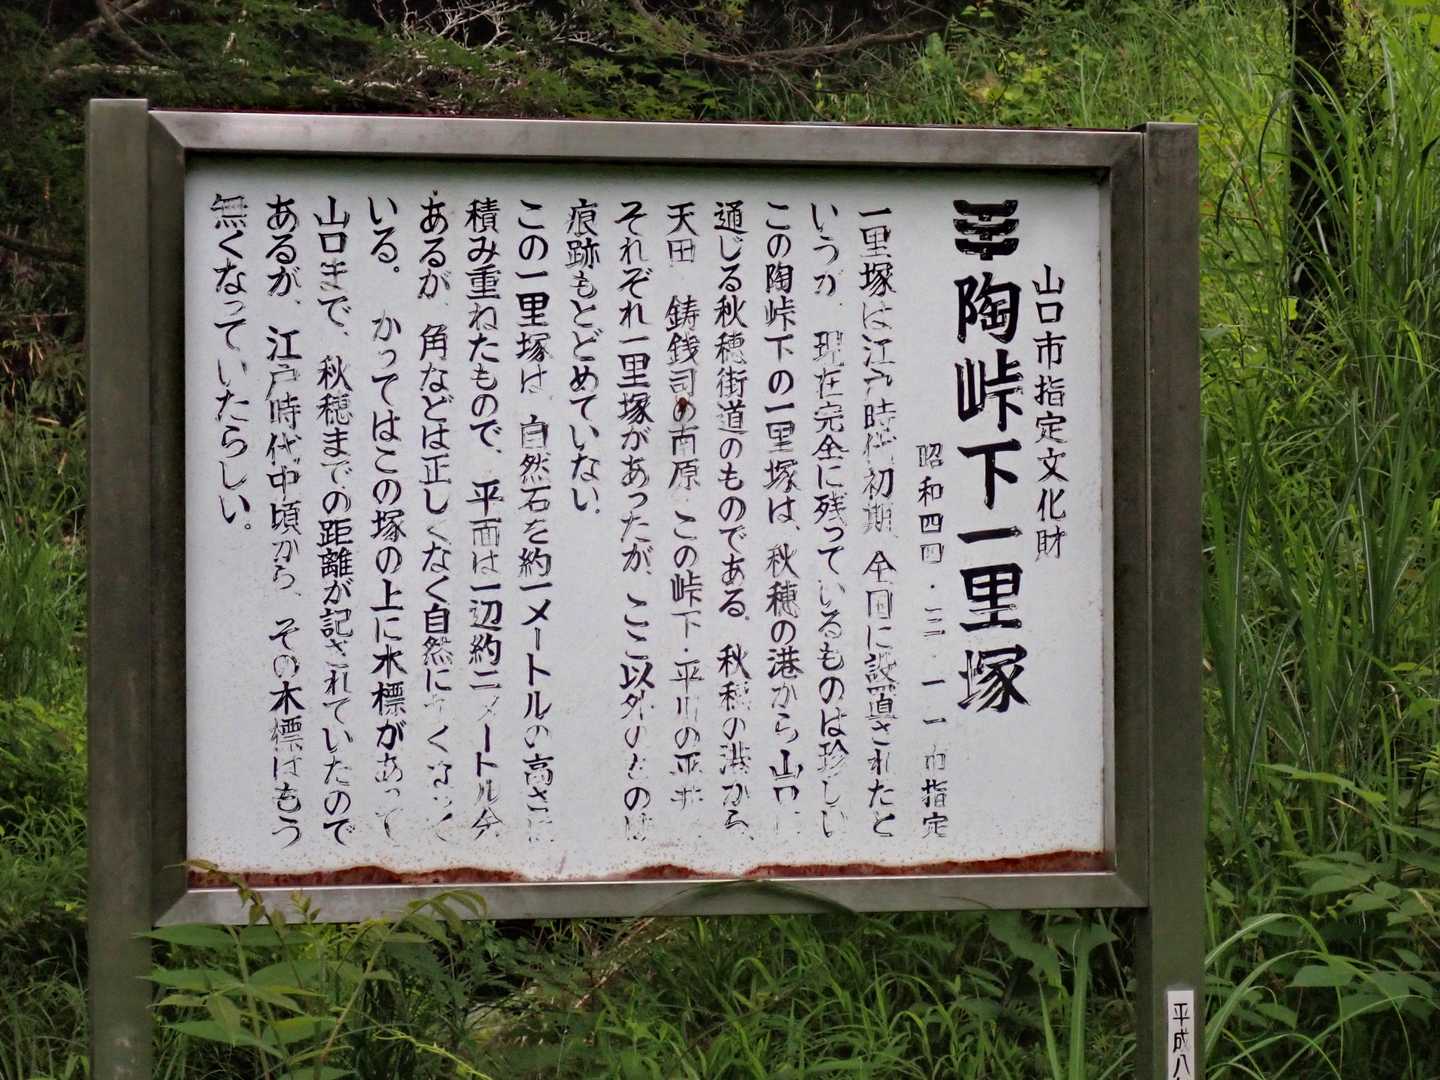 山口市指定文化財
陶峠下一里塚
昭和四四・一二・一一 市指定
一里塚は江戸時代初期、全国に設置されたと
いうが、現在完全に残っているものは珍しい
この陶峠下の一里塚は、秋穂の港から山口に
通じる秋穂街道のものである。秋穂の港から、
天田、鋳銭司の南原、この峠下・平川の平井
それぞれ一里塚があったが、ここ以外のものは
痕跡もとどめていない
この一里塚は、自然石を約一メートルの高さに
積み重ねたもので、平面は一辺約二メートル余
あるが、角などは正しくなく自然に
いる。かってはこの塚の上に木標があって
山口まで、秋穂までの距離が記されていたので
あるが、江戸時代中頃から、その木標はもう
無くなっていたらしい。
平成八